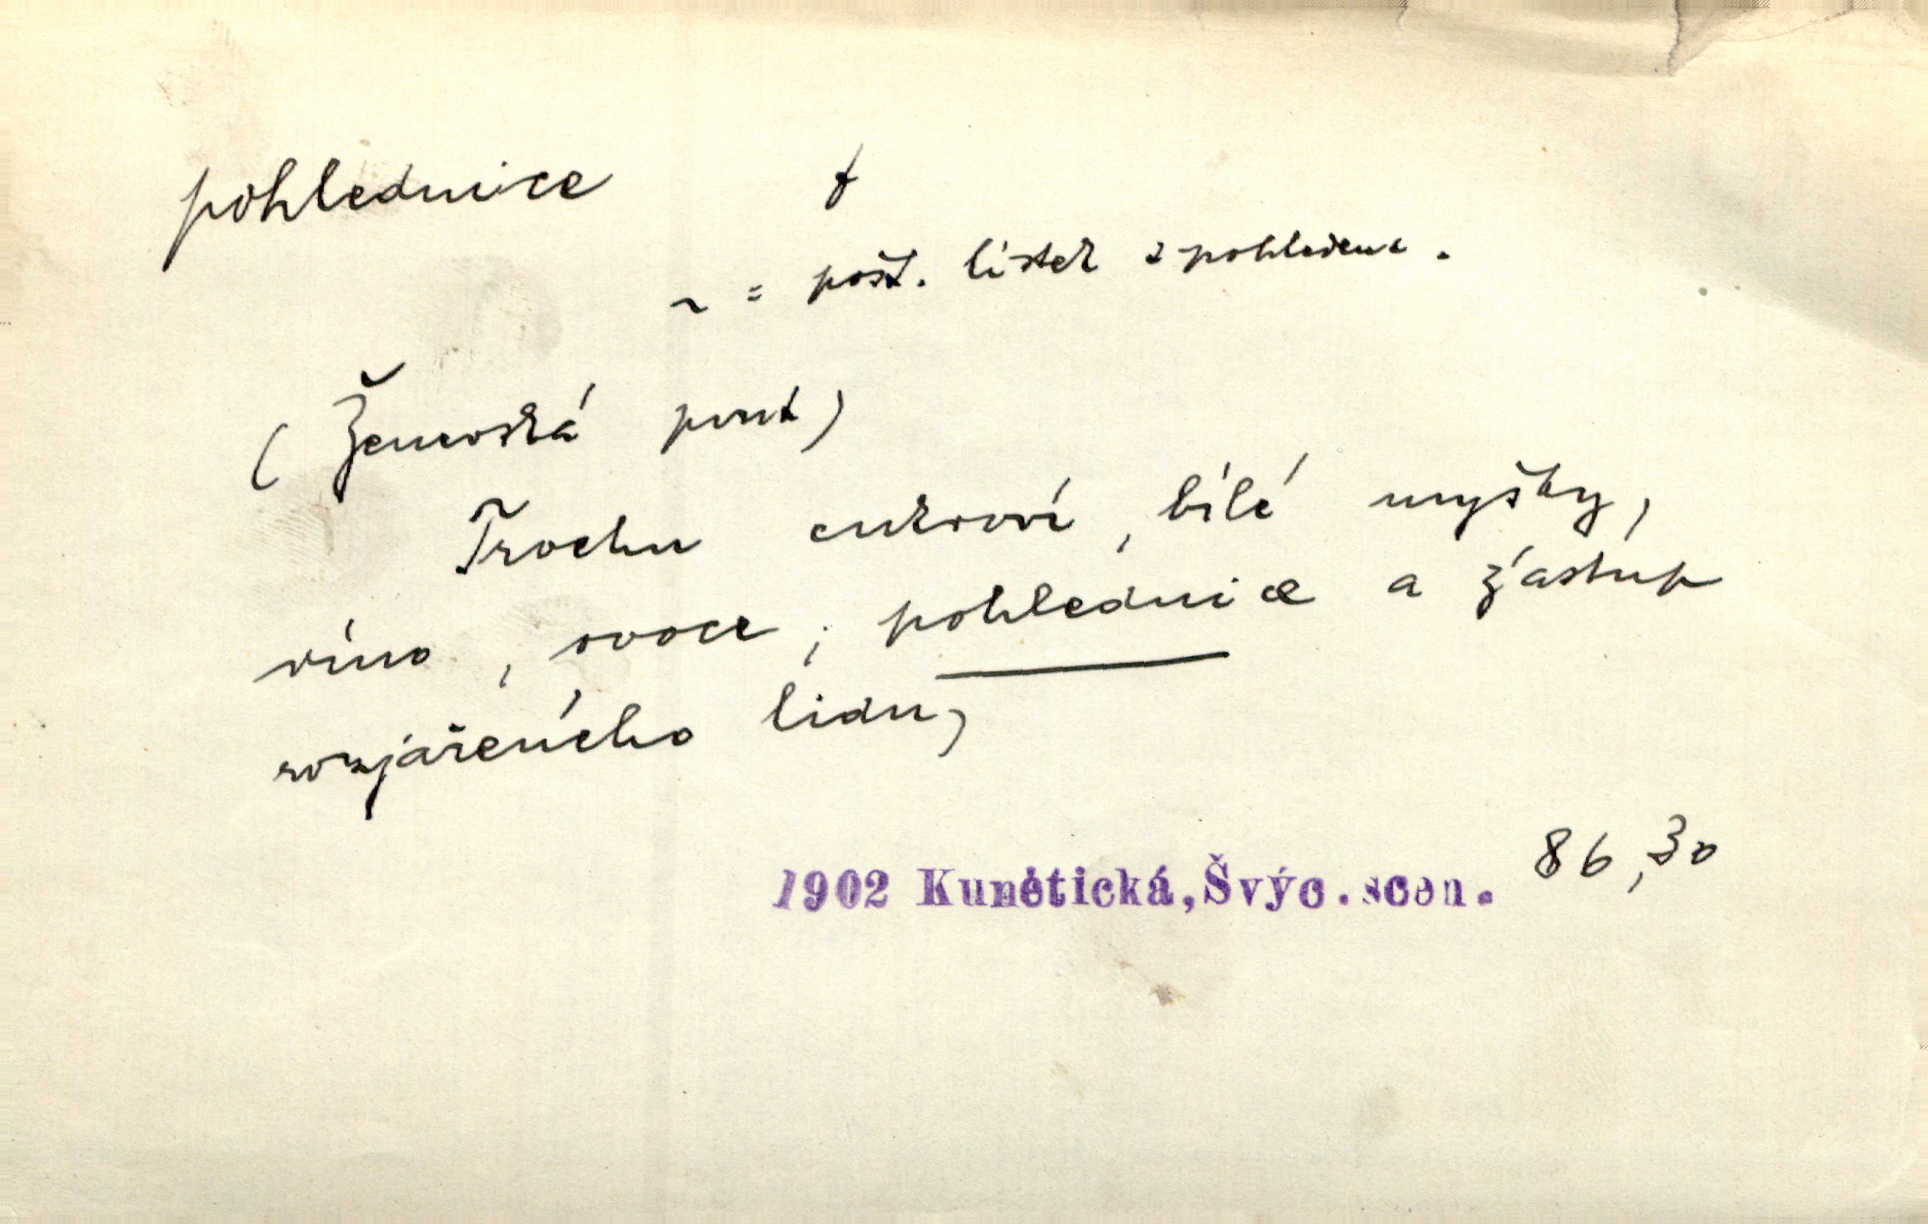 pohlednice f
~ = pošt. lístek s pohledem.
(Ženevská pouť)
Trochu cukroví, bílé myšky,
víno, ovoce, pohlednice a zástup
rozjařeného lidu,
1902 Kunětická, Švýc. scen. 86,30